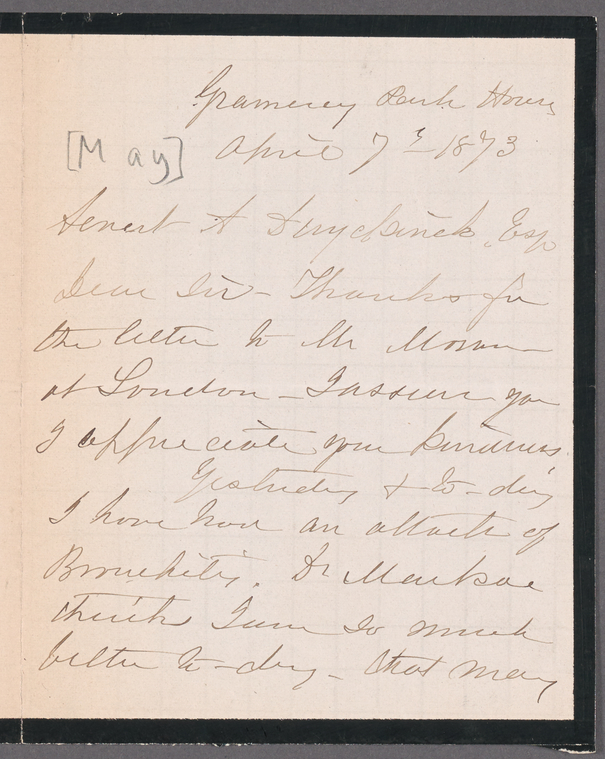 Gramercy Park House
[May] April 7th 1873
Evert A Duyckinck, Esq
Dear Sir - Thanks for
the letter to Mr Moran
at London - I assure you
I appreciate your kindness.
Yesterday & to-day
I have had an attack of
Bronchitis. Dr Markoe
thinks I am so much
better to-day - that may